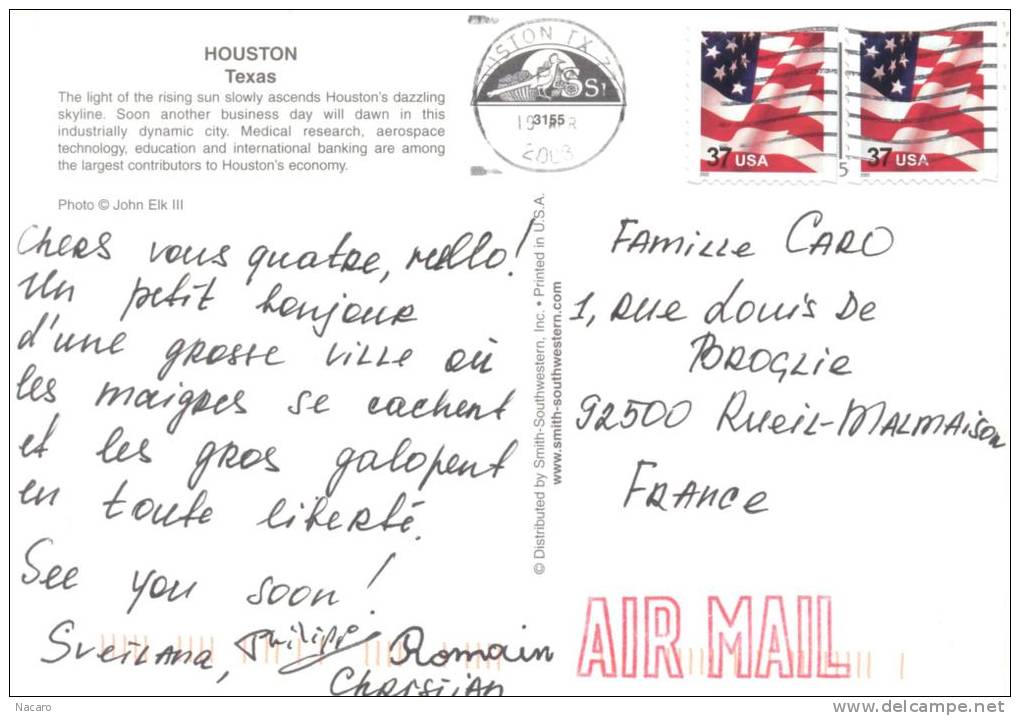 HOUSTON
Texas
The light of the rising sun slowly ascends Houston's dazzling
skyline. Soon another business day will dawn in this
industrially dynamic city. Medical research, aerospace
technology, education and international banking are among
the largest contributors to Houston's economy.
Photo © John Elk III
Chers vous quatre, hello!
Un petit bonjour
d'une grosse ville où
les maigres se cachent
et les gros galopent
en toute liberté.
See you soon!
Svetlana, Philippe Romain
Christian
© Distributed by Smith-Southwestern, Inc. • Printed in U.S.A.
www.smith-southwestern.com
3155
2003
37 USA
37 USA
5
Famille CARO
1, Rue Louis De
BROGLIE
92500 Rueil-Malmaison
FRANCE
AIR MAIL
Nacaro
www.delcampe.net